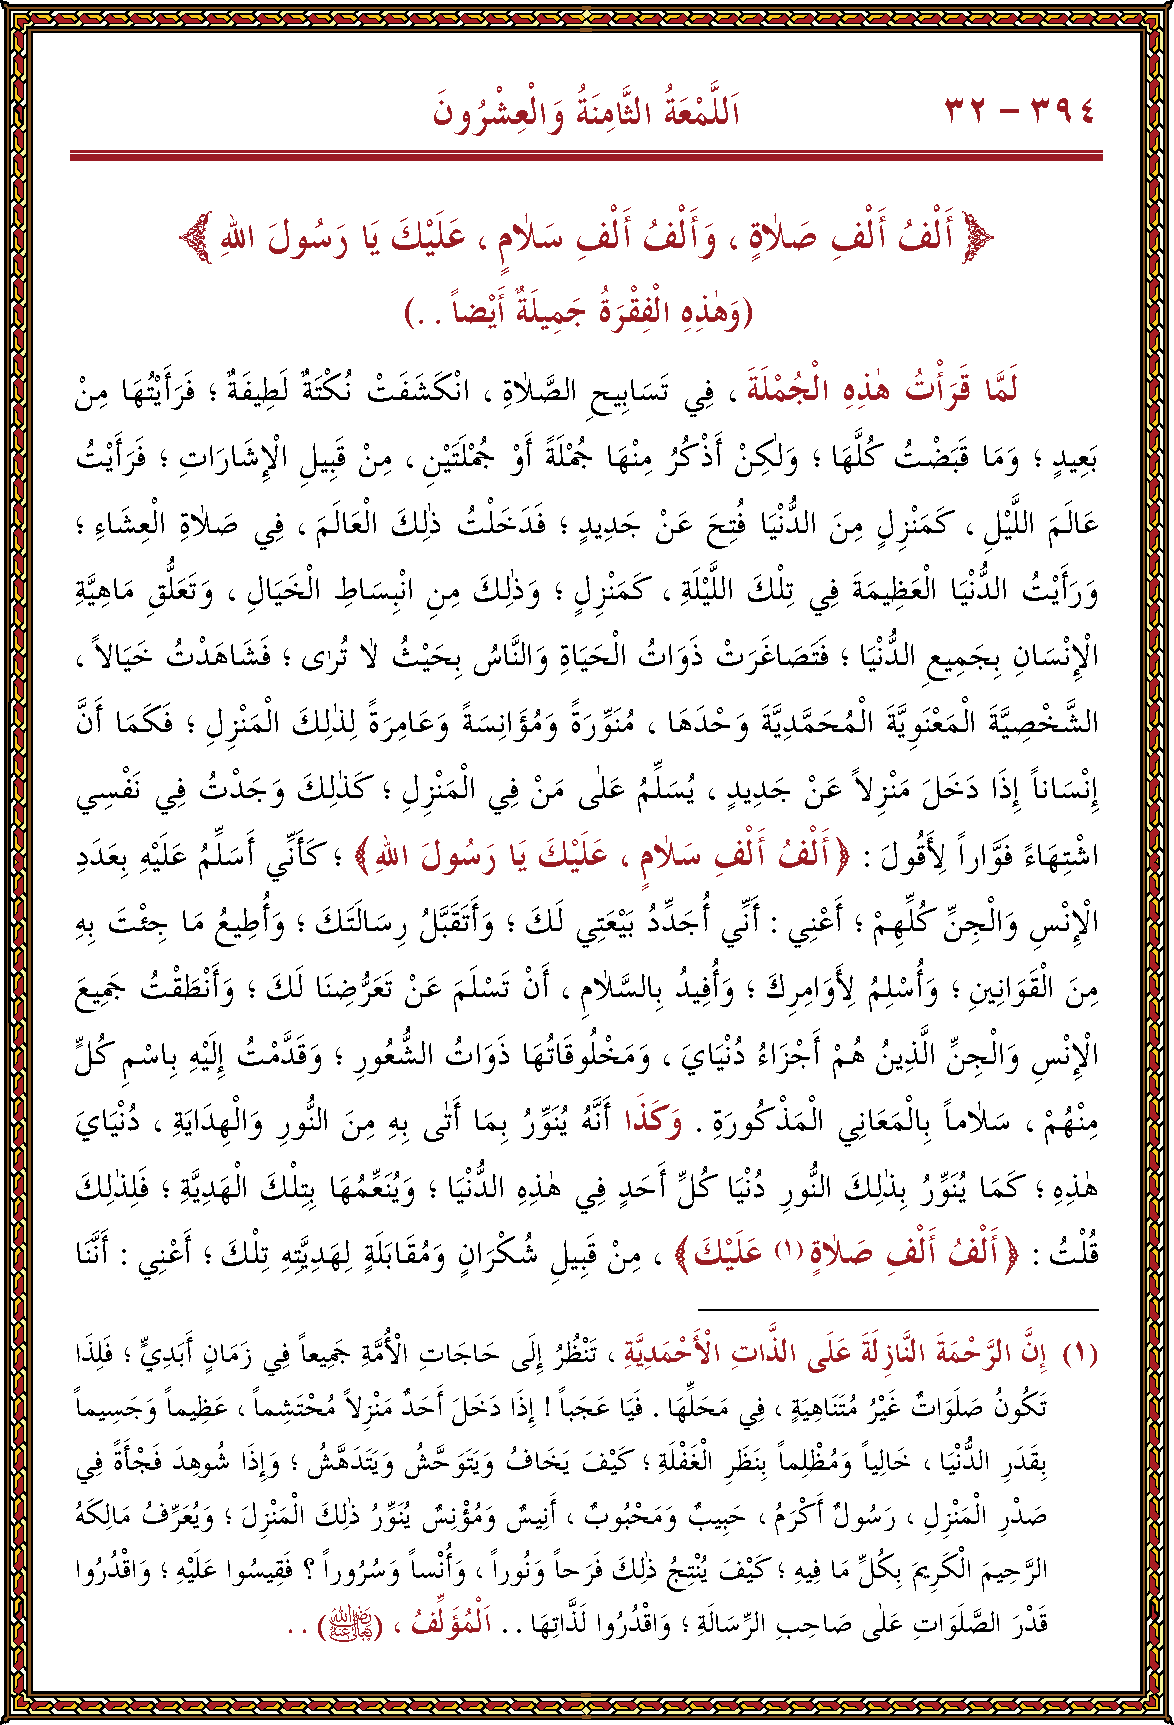 ٣٩٤ – ٣٢
اَللَّمْعَةُ الثَّامِنَةُ وَالْعِشْرُونَ
﴿ أَلْفُ أَلْفِ صَلَاةٍ ، وَأَلْفُ أَلْفِ سَلَامٍ ، عَلَيْكَ يَا رَسُولَ اللهِ ﴾
(وَهٰذِهِ الْفِقْرَةُ جَمِيلَةٌ أَيْضاً . .)
لَمَّا قَرَأْتُ هٰذِهِ الْجُمْلَةَ ، فِي تَسَابِيحِ الصَّلَاةِ ، انْكَشَفَتْ نُكْتَةٌ لَطِيفَةٌ ؛ فَرَأَيْتُهَا مِنْ
بَعِيدٍ ؛ وَمَا قَبَضْتُ كُلَّهَا ؛ وَلٰكِنْ أَذْكُرُ مِنْهَا جُمْلَةً أَوْ جُمْلَتَيْنِ ، مِنْ قَبِيلِ الْإِشَارَاتِ ؛ فَرَأَيْتُ
عَالَمَ اللَّيْلِ ، كَمَنْزِلٍ مِنَ الدُّنْيَا فُتِحَ عَنْ جَدِيدٍ ؛ فَدَخَلْتُ ذٰلِكَ الْعَالَمَ ، فِي صَلَاةِ الْعِشَاءِ ؛
وَرَأَيْتُ الدُّنْيَا الْعَظِيمَةَ فِي تِلْكَ اللَّيْلَةِ ، كَمَنْزِلٍ ؛ وَذٰلِكَ مِنِ انْبِسَاطِ الْخَيَالِ ، وَتَعَلُّقِ مَاهِيَّةِ
الْإِنْسَانِ بِجَمِيعِ الدُّنْيَا ؛ فَتَصَاغَرَتْ ذَوَاتُ الْحَيَاةِ وَالنَّاسُ بِحَيْثُ لَا تُرٰى ؛ فَشَاهَدْتُ خَيَالاً ،
الشَّخْصِيَّةَ الْمَعْنَوِيَّةَ الْمُحَمَّدِيَّةَ وَحْدَهَا ، مُنَوِّرَةً وَمُؤَانِسَةً وَعَامِرَةً لِذٰلِكَ الْمَنْزِلِ ؛ فَكَمَا أَنَّ
إِنْسَاناً إِذَا دَخَلَ مَنْزِلاً عَنْ جَدِيدٍ ، يُسَلِّمُ عَلٰى مَنْ فِي الْمَنْزِلِ ؛ كَذٰلِكَ وَجَدْتُ فِي نَفْسِي
اشْتِهَاءً فَوَّاراً لِأَقُولَ : ﴿أَلْفُ أَلْفِ سَلَامٍ ، عَلَيْكَ يَا رَسُولَ اللهِ﴾ ؛ كَأَنِّي أُسَلِّمُ عَلَيْهِ بِعَدَدِ
الْإِنْسِ وَالْجِنِّ كُلِّهِمْ ؛ أَعْنِي : أَنِّي أُجَدِّدُ بَيْعَتِي لَكَ ؛ وَأَتَقَبَّلُ رِسَالَتَكَ ؛ وَأُطِيعُ مَا جِئْتَ بِهِ
مِنَ الْقَوَانِينِ ؛ وَأُسْلِمُ لِأَوَامِرِكَ ؛ وَأُفِيدُ بِالسَّلَامِ ، أَنْ تَسْلَمَ عَنْ تَعَرُّضِنَا لَكَ ؛ وَأَنْطَقْتُ جَمِيعَ
الْإِنْسِ وَالْجِنِّ الَّذِينُ هُمْ أَجْزَاءُ دُنْيَايَ ، وَمَخْلُوقَاتُهَا ذَوَاتُ الشُّعُورِ ؛ وَقَدَّمْتُ إِلَيْهِ بِاسْمِ كُلٍّ
مِنْهُمْ ، سَلَاماً بِالْمَعَانِي الْمَذْكُورَةِ . وَكَذَا أَنَّهُ يُنَوِّرُ بِمَا أَتٰى بِهِ مِنَ النُّورِ وَالْهِدَايَةِ ، دُنْيَايَ
هٰذِهِ ؛ كَمَا يُنَوِّرُ بِذٰلِكَ النُّورِ دُنْيَا كُلِّ أَحَدٍ فِي هٰذِهِ الدُّنْيَا ؛ وَيُنَعِّمُهَا بِتِلْكَ الْهَدِيَّةِ ؛ فَلِذٰلِكَ
قُلْتُ : ﴿أَلْفُ أَلْفِ صَلَاةٍ (١) عَلَيْكَ﴾ ، مِنْ قَبِيلِ شُكْرَانٍ وَمُقَابَلَةٍ لِهَدِيَّتِهِ تِلْكَ ؛ أَعْنِي : أَنَّنَا
(١) إِنَّ الرَّحْمَةَ النَّازِلَةَ عَلَى الذَّاتِ الْأَحْمَدِيَّةِ ، تَنْظُرُ إِلَى حَاجَاتِ الْأُمَّةِ جَمِيعاً فِي زَمَانٍ أَبَدِيٍّ ؛ فَلِذَا
تَكُونُ صَلَوَاتٌ غَيْرُ مُتَنَاهِيَةٍ ، فِي مَحَلِّهَا . فَيَا عَجَباً ! إِذَا دَخَلَ أَحَدٌ مَنْزِلاً مُحْتَشِماً ، عَظِيماً وَجَسِيماً
بِقَدَرِ الدُّنْيَا ، خَالِياً وَمُظْلِماً بِنَظَرِ الْغَفْلَةِ ؛ كَيْفَ يَخَافُ وَيَتَوَحَّشُ وَيَتَدَهَّشُ ؛ وَإِذَا شُوهِدَ فَجْأَةً فِي
صَدْرِ الْمَنْزِلِ ، رَسُولٌ أَكْرَمُ ، حَبِيبٌ وَمَحْبُوبٌ ، أَنِيسٌ وَمُؤْنِسٌ يُنَوِّرُ ذٰلِكَ الْمَنْزِلَ ؛ وَيُعَرِّفُ مَالِكَهُ
الرَّحِيمَ الْكَرِيمَ بِكُلِّ مَا فِيهِ ؛ كَيْفَ يُنْتِجُ ذٰلِكَ فَرَحاً وَنُوراً ، وَأُنْساً وَسُرُوراً ؟ فَقِيسُوا عَلَيْهِ ؛ وَاقْدُرُوا
قَدْرَ الصَّلَوَاتِ عَلٰى صَاحِبِ الرِّسَالَةِ ؛ وَاقْدُرُوا لَذَّاتِهَا . . اَلْمُؤَلِّفُ ، (رَضِيَ اللهُ تَعَالَى عَنْهُ) . .